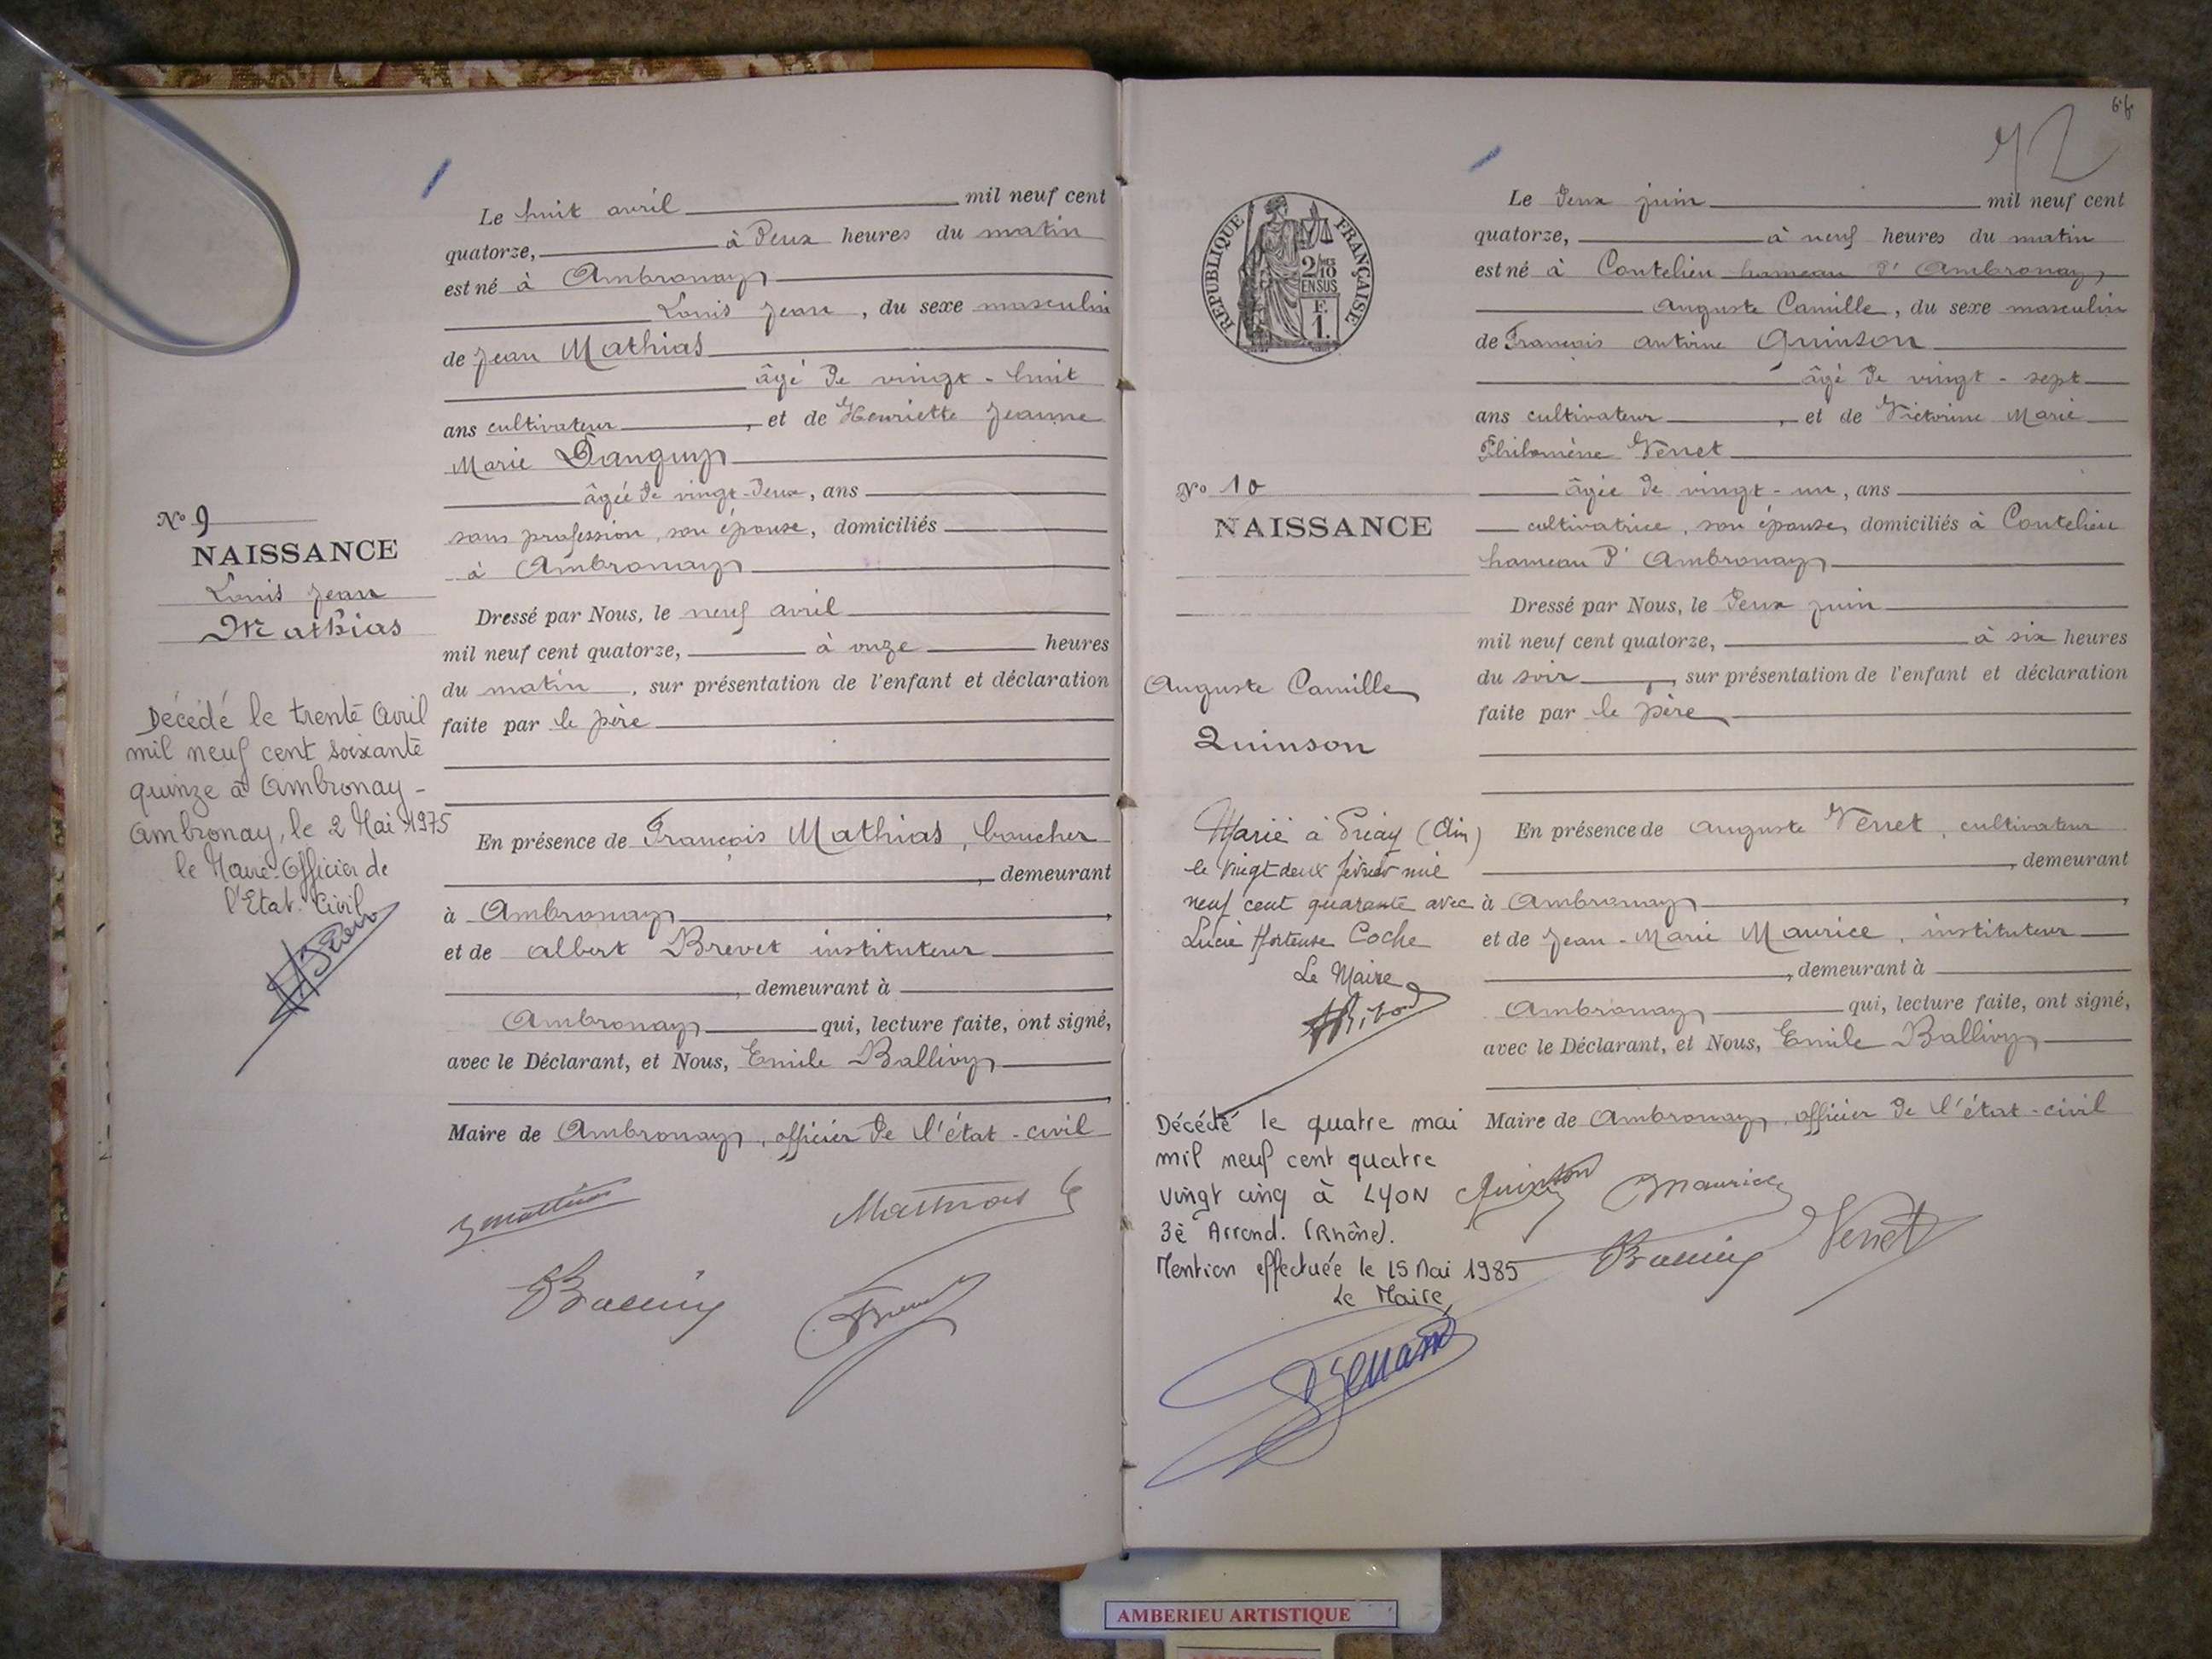 Le huit avril mil neuf cent
quatorze, à deux heures du matin
est né à Ambronay
Louis Jean, du sexe masculin
de Jean Mathias
âgé de vingt-huit
ans cultivateur, et de Henriette Jeanne
Marie Danguy
âgée de vingt-deux, ans
sans profession, son épouse, domiciliés
à Ambronay
Nº 9
NAISSANCE
Louis Jean
Mathias
Dressé par Nous, le neuf avril
mil neuf cent quatorze, à onze heures
du matin, sur présentation de l'enfant et déclaration
faite par le père
Décédé le trente Avril
mil neuf cent soixante
quinze à Ambronay -
Ambronay, le 2 Mai 1975
le Maire Officier de
l'Etat. Civil
En présence de François Mathias, boucher
, demeurant
à Ambronay,
et de Albert Brevet instituteur
, demeurant à
Ambronay qui, lecture faite, ont signé,
avec le Déclarant, et Nous, Emile Ballivy
Maire de Ambronay, officier de l'état-civil
72
REPUBLIQUE FRANÇAISE
2/10
EN SUS
F.
1.
Le deux juin mil neuf cent
quatorze, à neuf heures du matin
est né à Coutelieu hameau d'Ambronay,
Auguste Camille, du sexe masculin
de François Antoine Quinson
âgé de vingt-sept
ans cultivateur, et de Victorine Marie
Philomène Verret
âgée de vingt-un, ans
cultivatrice, son épouse, domiciliés à Coutelieu
hameau d'Ambronay
Nº 10
NAISSANCE
Auguste Camille
Quinson
Dressé par Nous, le deux juin
mil neuf cent quatorze, à six heures
du soir, sur présentation de l'enfant et déclaration
faite par le père
Marié à Priay (Ain)
le vingt deux février mil
neuf cent quarante avec
Lucie Hortense Coche
Le Maire
En présence de Auguste Verret, cultivateur
, demeurant
à Ambronay,
et de Jean-Marie Maurice, instituteur
, demeurant à
Ambronay qui, lecture faite, ont signé,
avec le Déclarant, et Nous, Emile Ballivy
Maire de Ambronay, officier de l'état-civil
Décédé le quatre mai
mil neuf cent quatre
vingt cinq à LYON
3è Arrond. (Rhône).
Mention effectuée le 15 Mai 1985
Le Maire,
Quinson Maurice
Verret
AMBERIEU ARTISTIQUE